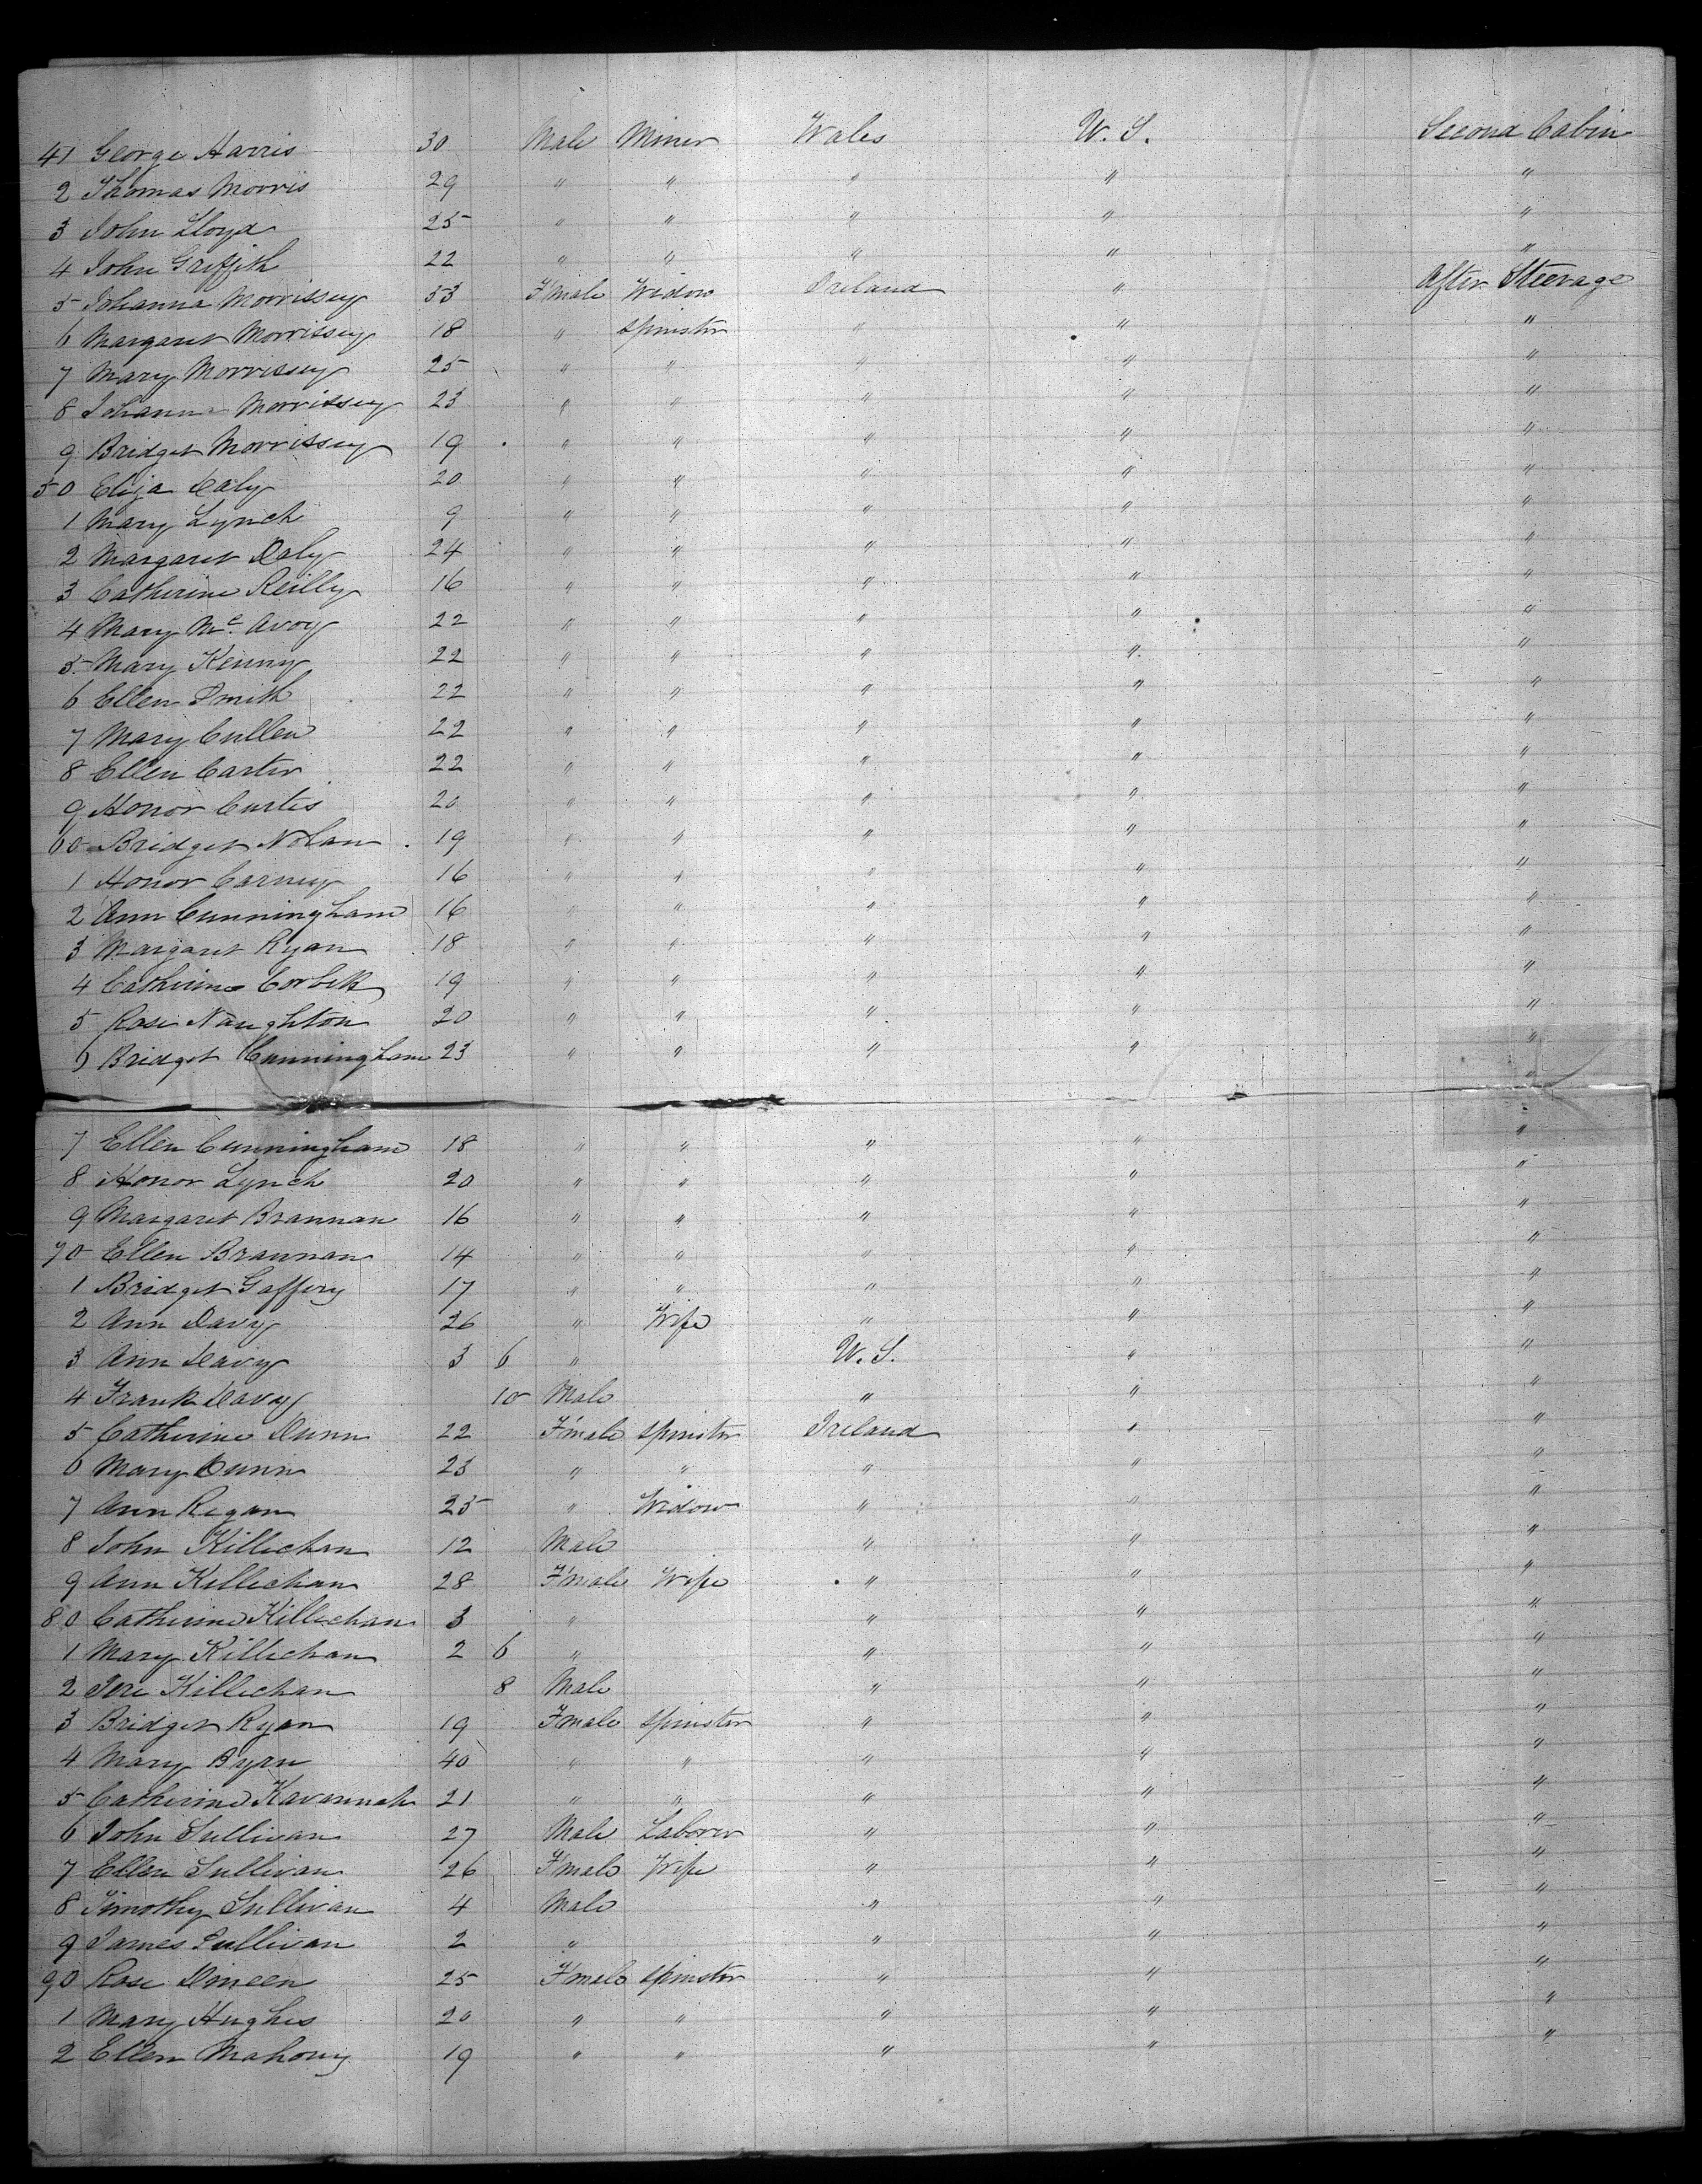 41 George Harris 30 Male Miner Wales U. S. Second Cabin
2 Thomas Morris 29 " " " " "
3 John Lloyd 25 " " " " "
4 John Griffith 22 " " " " "
5 Johanna Morrissey 53 F'male Widow Ireland " After Steerage
6 Margaret Morrissey 18 " Spinster " " "
7 Mary Morrissey 25 " " " " "
8 Johanna Morrissey 23 " " " " "
9 Bridget Morrissey 19 " " " " "
50 Eliza Daly 20 " " " " "
1 Mary Lynch 9 " " " " "
2 Margaret Daly 24 " " " " "
3 Catherine Reilly 16 " " " " "
4 Mary Mc Avoy 22 " " " " "
5 Mary Kenny 22 " " " " "
6 Ellen Smith 22 " " " " "
7 Mary Cullen 22 " " " " "
8 Ellen Carter 22 " " " " "
9 Honor Curtis 20 " " " " "
60 Bridget Nolan 19 " " " " "
1 Honor Carney 16 " " " " "
2 Ann Cunningham 16 " " " " "
3 Margaret Ryan 18 " " " " "
4 Catherine Corbett 19 " " " " "
5 Rose Naughton 20 " " " " "
6 Bridget Cunningham 23 " " " " "
"
7 Ellen Cunningham 18 " " " " "
8 Honor Lynch 20 " " " " "
9 Margaret Brannan 16 " " " " "
70 Ellen Brannan 14 " " " " "
1 Bridget Gaffery 17 " " " " "
2 Ann Davy 26 " Wife " " "
3 Ann Davy 3 6 " U. S. " "
4 Frank Davy 10 Male " " "
5 Catherine Dunn 22 F'male Spinster Ireland " "
6 Mary Dunn 23 " " " " "
7 Ann Regan 25 " Widow " " "
8 John Killichan 12 Male " " "
9 Ann Killichan 28 F'male Wife " " "
80 Catherine Killichan 3 " " " "
1 Mary Killichan 2 6 " " " "
2 Jere Killichan 8 Male " " "
3 Bridget Ryan 19 F'male Spinster " " "
4 Mary Byrn 40 " " " " "
5 Catherine Kavannah 21 " " " " "
6 John Sullivan 27 Male Laborer " " "
7 Ellen Sullivan 26 F'male Wife " " "
8 Timothy Sullivan 4 Male " " "
9 James Sullivan 2 " " " "
90 Rose Dineen 25 F'male Spinster " " "
1 Mary Hughes 20 " " " " "
2 Ellen Mahony 19 " " " " "